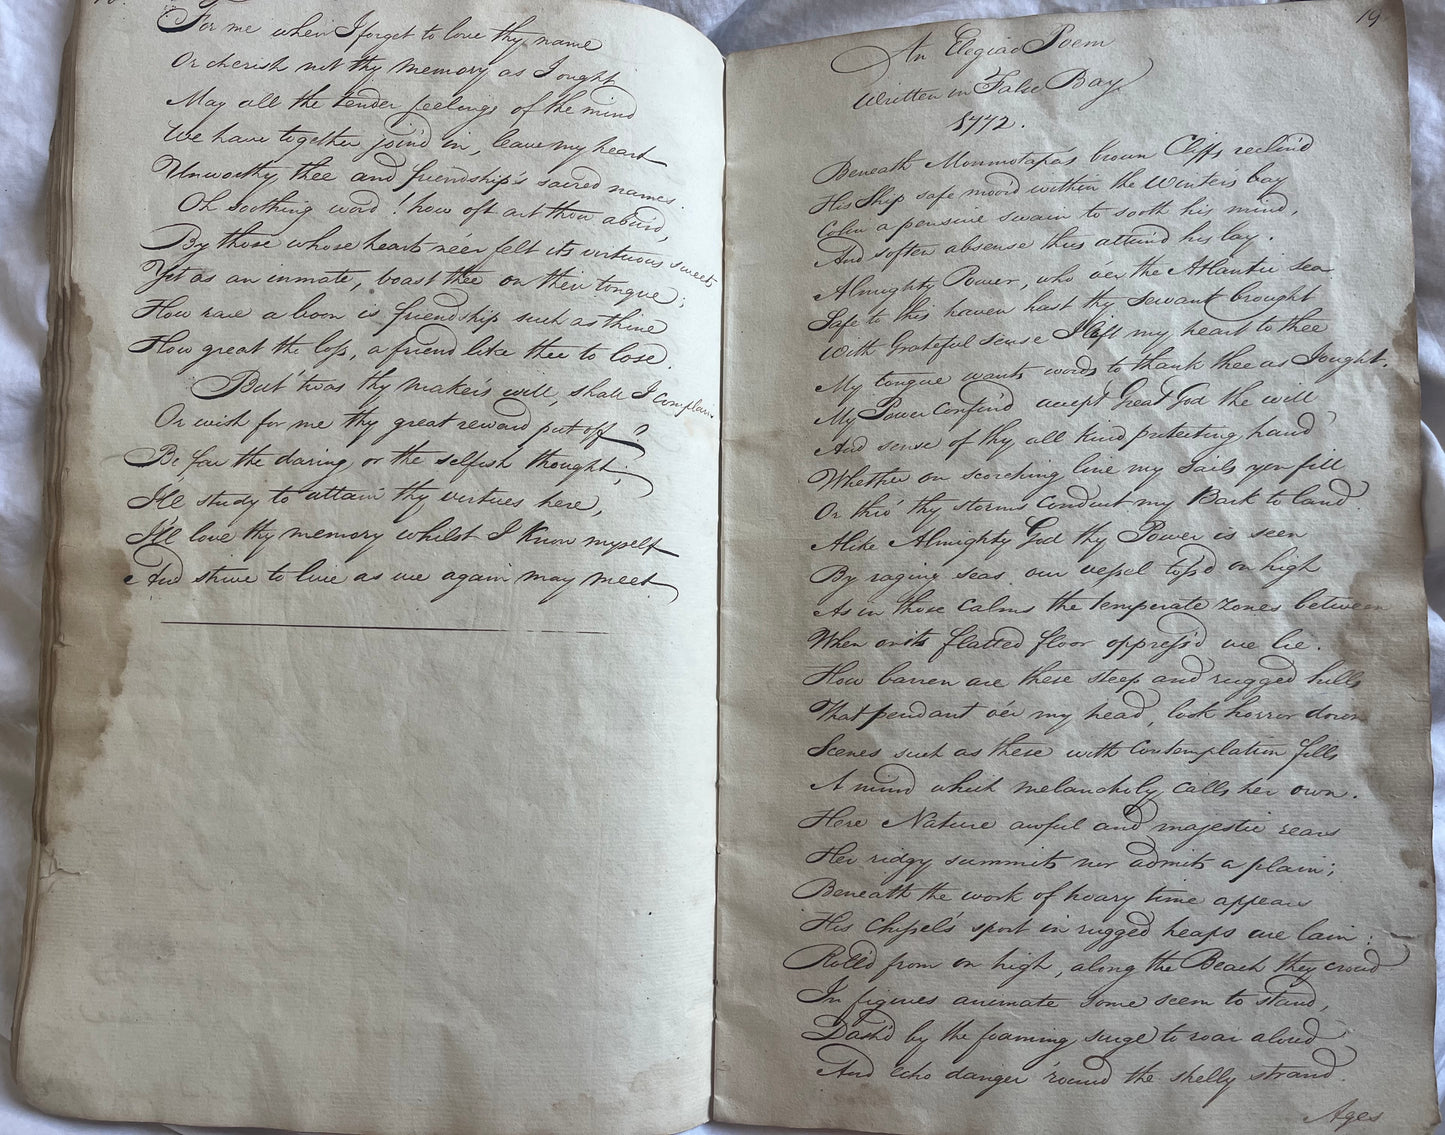 For me when I forget to love thy name
Or cherish not thy memory as I ought
May all the tender feelings of the mind
We have together join'd in, leave my heart
Unworthy thee and friendship's sacred names.
Oh soothing word! how oft art thou abus'd,
By those whose hearts ne'er felt its virtuous sweets
Yet as an inmate, boast thee on their tongue;
How rare a boon is friendship such as thine
How great the loss, a friend like thee to lose.
But 'twas thy maker's will, shall I complain
Or wish for me thy great reward put off?
Be far the daring, or the selfish thought;
I'll study to attain thy virtues here,
I'll love thy memory whilst I know myself
And strive to live as we again may meet.
19.
An Elegiac Poem
Written in False Bay.
1772.
Beneath Monmotapa's brown Cliffs reclin'd
His Ship safe moor'd within the Winter's bay
Colin a pensive swain to sooth his mind,
And soften absense thus attun'd his lay.
Almighty Power, who o'er the Atlantic sea
Safe to this haven hast thy servant brought
With Grateful sense I lift my heart to thee
My tongue wants words to thank thee as I ought.
My Power confin'd accept Great God the will
And sense of thy all kind protecting hand
Whether on scorching line my sails you fill
Or thro' thy storms conduct my Back to land.
Alike Almighty God thy Power is seen
By raging seas our vessel toss'd on high
As in those Calms the temperate zones between
When on its flatted floor oppress'd we lie.
How barren are these steep and rugged hills
That pendant o'er my head, look horror down
Scenes such as these with Contemplation fills
A mind which melancholy calls her own.
Here Nature awful and majestic rears
Her ridgy summits nor admits a plain;
Beneath the work of hoary time appears
His chissel's sport in rugged heaps are lain:
Roll'd from on high, along the Beach they croud
In figures animate some seem to stand,
Dash'd by the foaming surge to roar aloud
And echo danger 'round the shelly strand.
Ages